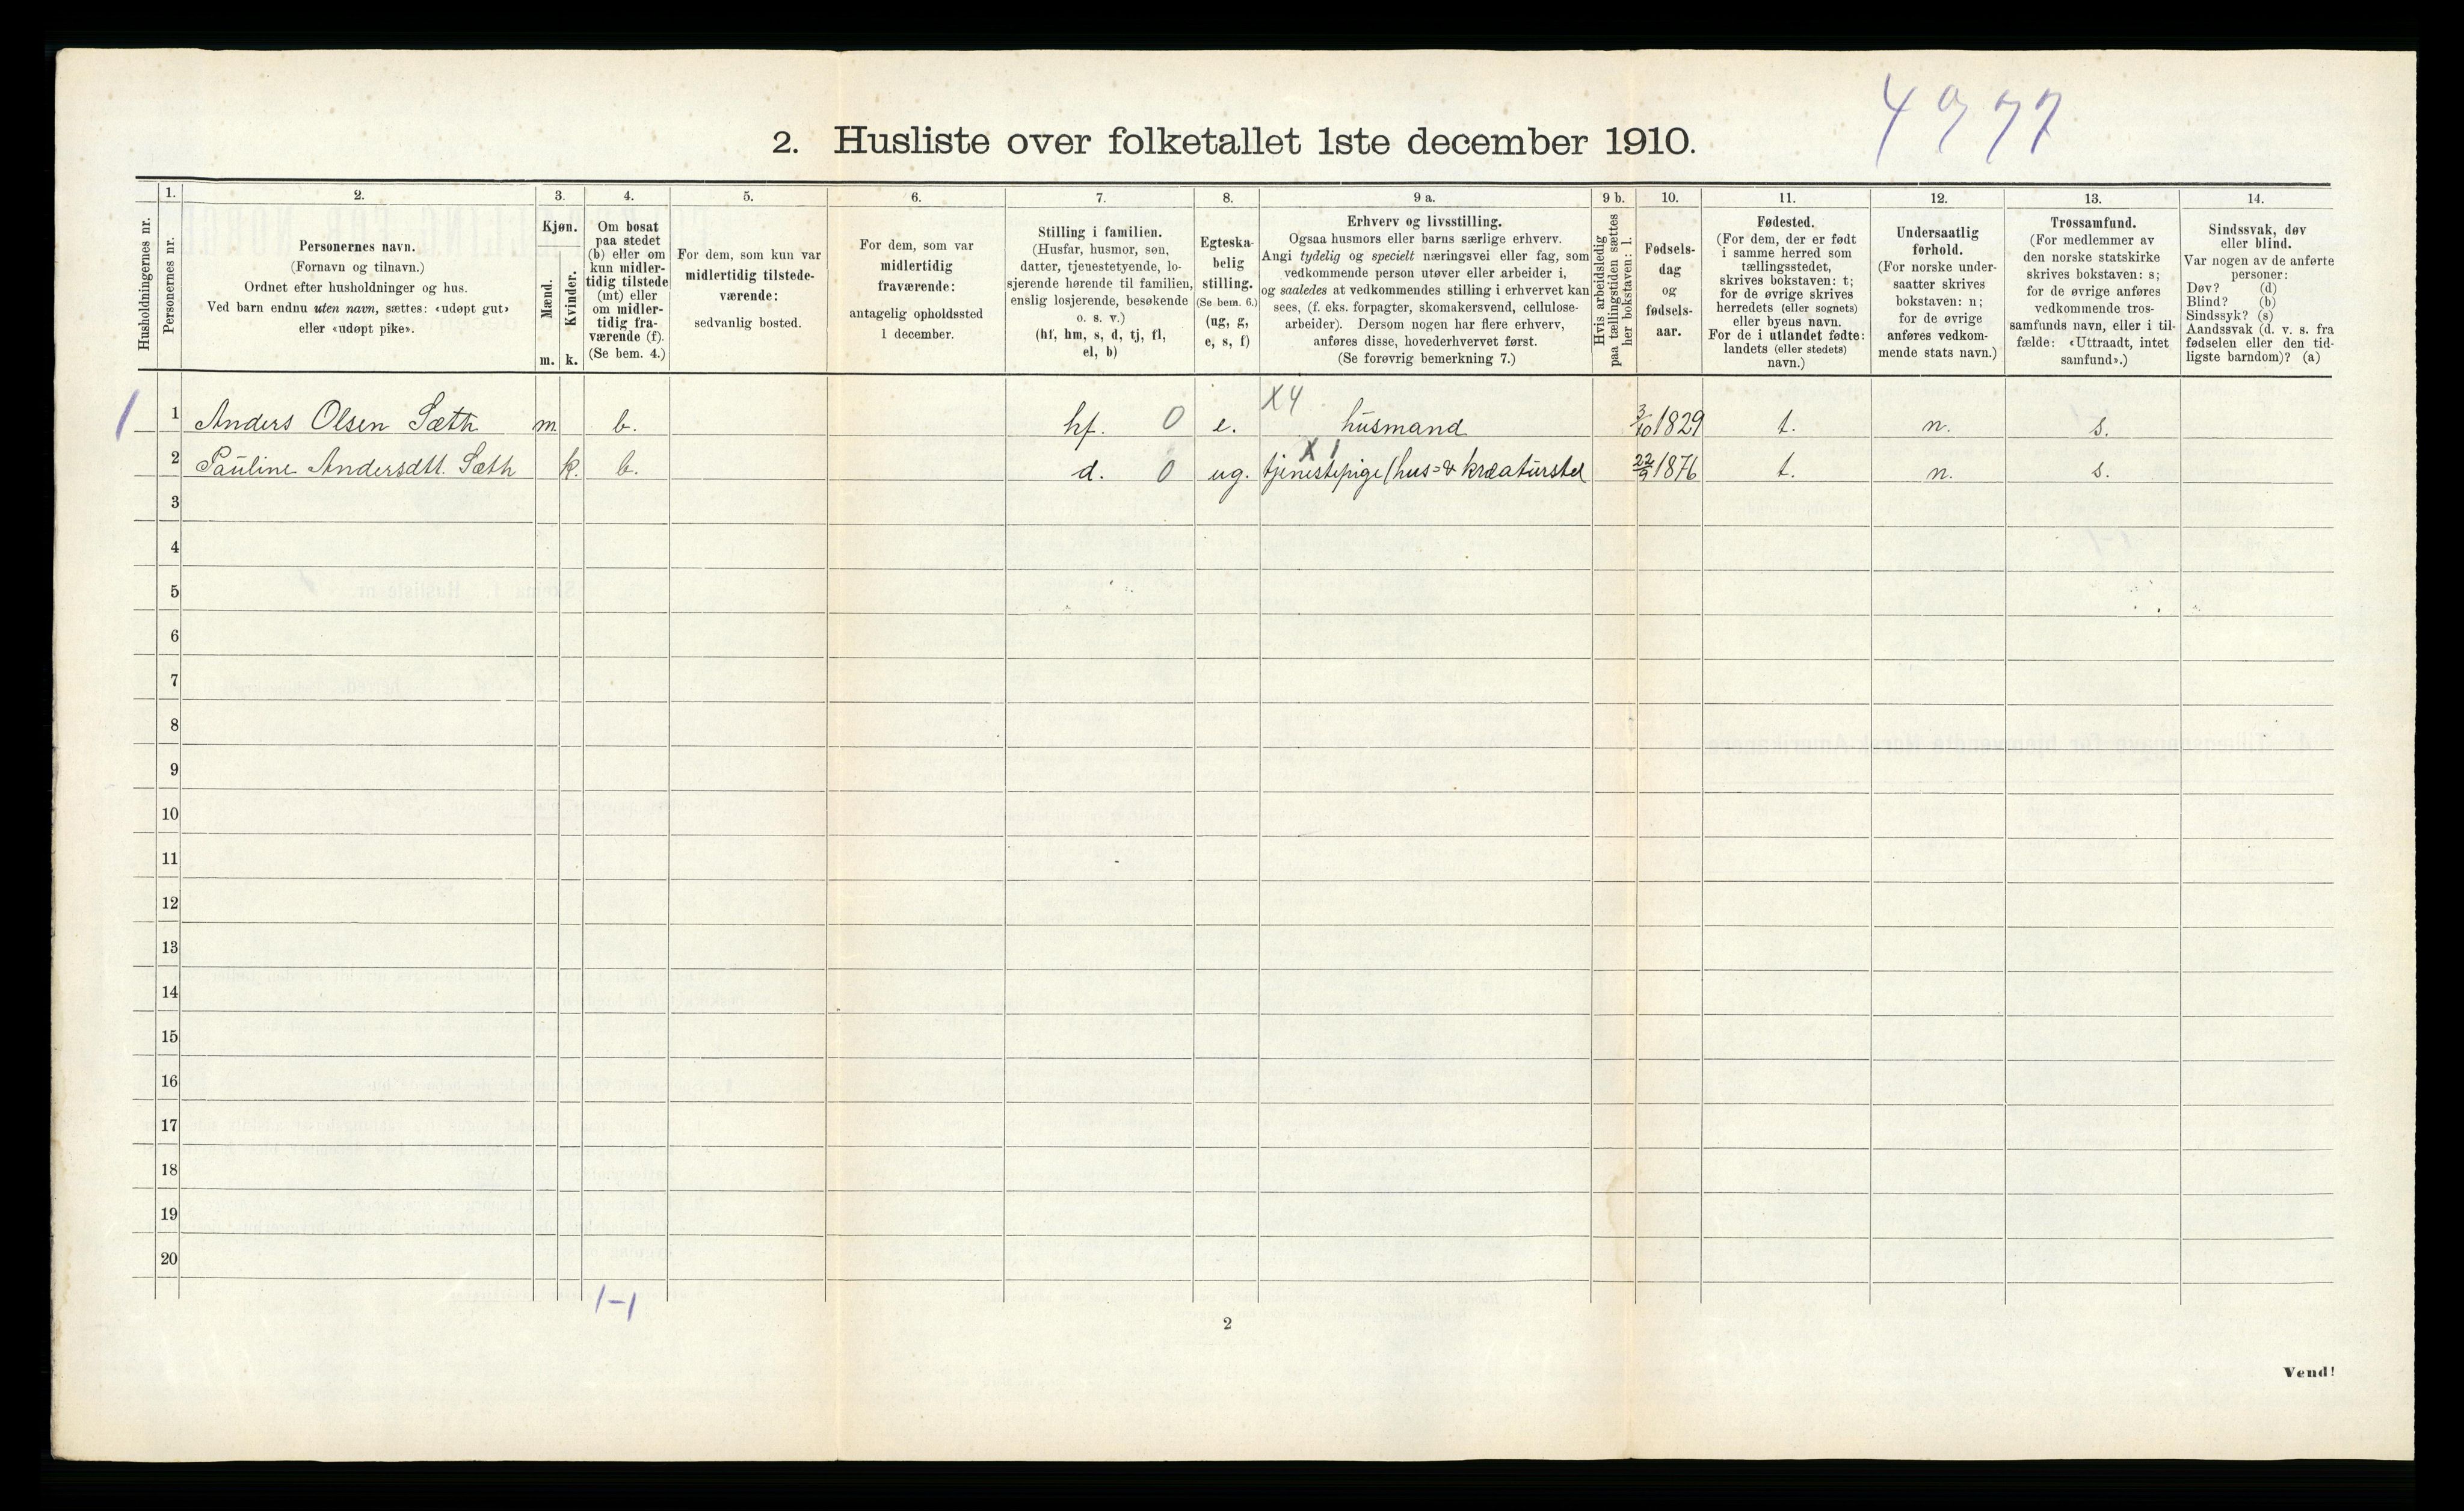 4977
2. Husliste over folketallet 1ste december 1910.
Husholdningernes nr.
1.
Personernes nr.
2.
Personernes navn.
(Fornavn og tilnavn.)
Ordnet efter husholdninger og hus.
Ved barn endnu uten navn, sættes: «udøpt gut»
eller «udøpt pike».
3.
Kjøn.
Mænd.
Kvinder.
m. k.
4.
Om bosat
paa stedet
(b) eller om
kun midler-
tidig tilstede
(mt) eller
om midler-
tidig fra-
værende (f).
(Se bem. 4.)
5.
For dem, som kun var
midlertidig tilstede-
værende:
sedvanlig bosted.
6.
For dem, som var
midlertidig
fraværende:
antagelig opholdssted
1 december.
7.
Stilling i familien.
(Husfar, husmor, søn,
datter, tjenestetyende, lo-
sjerende hørende til familien,
enslig losjerende, besøkende
o. s. v.)
(hf, hm, s, d, tj, fl,
el, b)
8.
Egteska-
belig
stilling.
(Se bem. 6.)
(ug, g,
e, s, f)
9 a.
Erhverv og livsstilling.
Ogsaa husmors eller barns særlige erhverv.
Angi tydelig og specielt næringsvei eller fag, som
vedkommende person utøver eller arbeider i,
og saaledes at vedkommendes stilling i erhvervet kan
sees, (f. eks. forpagter, skomakersvend, cellulose-
arbeider). Dersom nogen har flere erhverv,
anføres disse, hovederhvervet først.
(Se forøvrig bemerkning 7.)
9 b.
Hvis arbeidsledig
paa tællingstiden sættes
her bokstaven: l.
10.
Fødsels-
dag
og
fødsels-
aar.
11.
Fødested.
(For dem, der er født
i samme herred som
tællingsstedet,
skrives bokstaven: t;
for de øvrige skrives
herredets (eller sognets)
eller byens navn.
For de i utlandet fødte:
landets (eller stedets)
navn.)
12.
Undersaatlig
forhold.
(For norske under-
saatter skrives
bokstaven: n;
for de øvrige
anføres vedkom-
mende stats navn.)
13.
Trossamfund.
(For medlemmer av
den norske statskirke
skrives bokstaven: s;
for de øvrige anføres
vedkommende tros-
samfunds navn, eller i til-
fælde: «Uttraadt, intet
samfund».)
14.
Sindssvak, døv
eller blind.
Var nogen av de anførte
personer:
Døv? (d)
Blind? (b)
Sindssyk? (s)
Aandssvak (d. v. s. fra
fødselen eller den tid-
ligste barndom)? (a)
X4
1 1 Anders Olsen Sæth m b. hf. 0 e. husmand 3/10 1829 t. n. s.
X 1
2 Pauline Andersdtt. Sæth k. b. d. 0 ug. tjenestepige (hus= & kræaturstel 22/9 1876 t. n. s.
3
4
5
6
7
8
9
10
11
12
13
14
15
16
17
18
19
20
1-1
2
Vend!